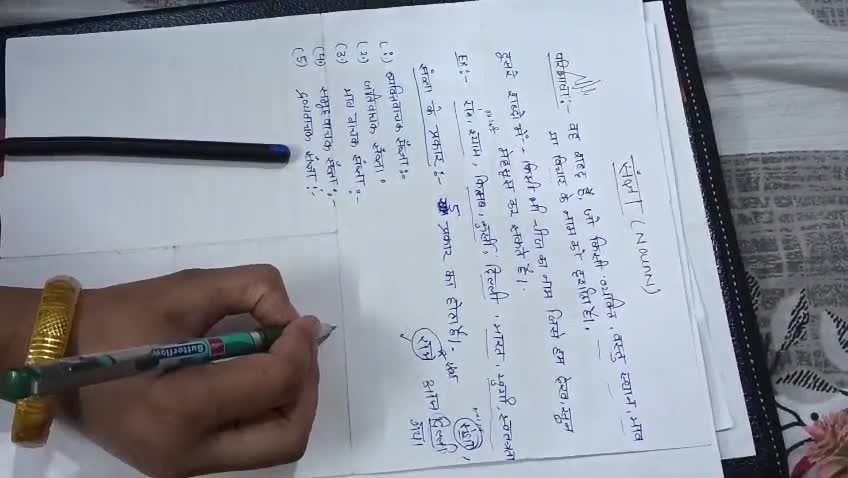 संज्ञा (NOUN)
परिभाषा:- वह शब्द है, जो किसी व्यक्ति, वस्तु स्थान, भाव
या विचार के नाम को दर्शाता है।
दूसरे शब्दों में - किसी भी चीज का नाम जिसे हम देख, सुन
महसूस कर सकते हैं।
Ex:- राम, श्याम, किताब, कुर्सी, दिल्ली, भारत, खुशी,
संज्ञा के प्रकार:- 5 प्रकार का होता है।
राम दिल्ली
गया।
(1) व्यक्तिवाचक संज्ञा:-
(2) जातिवाचक संज्ञा:
(3) भाव वाचक संज्ञा:-
(4) समूहवाचक संज्ञा:-
(5) द्रव्यवाचक संज्ञा:-
Butterflow